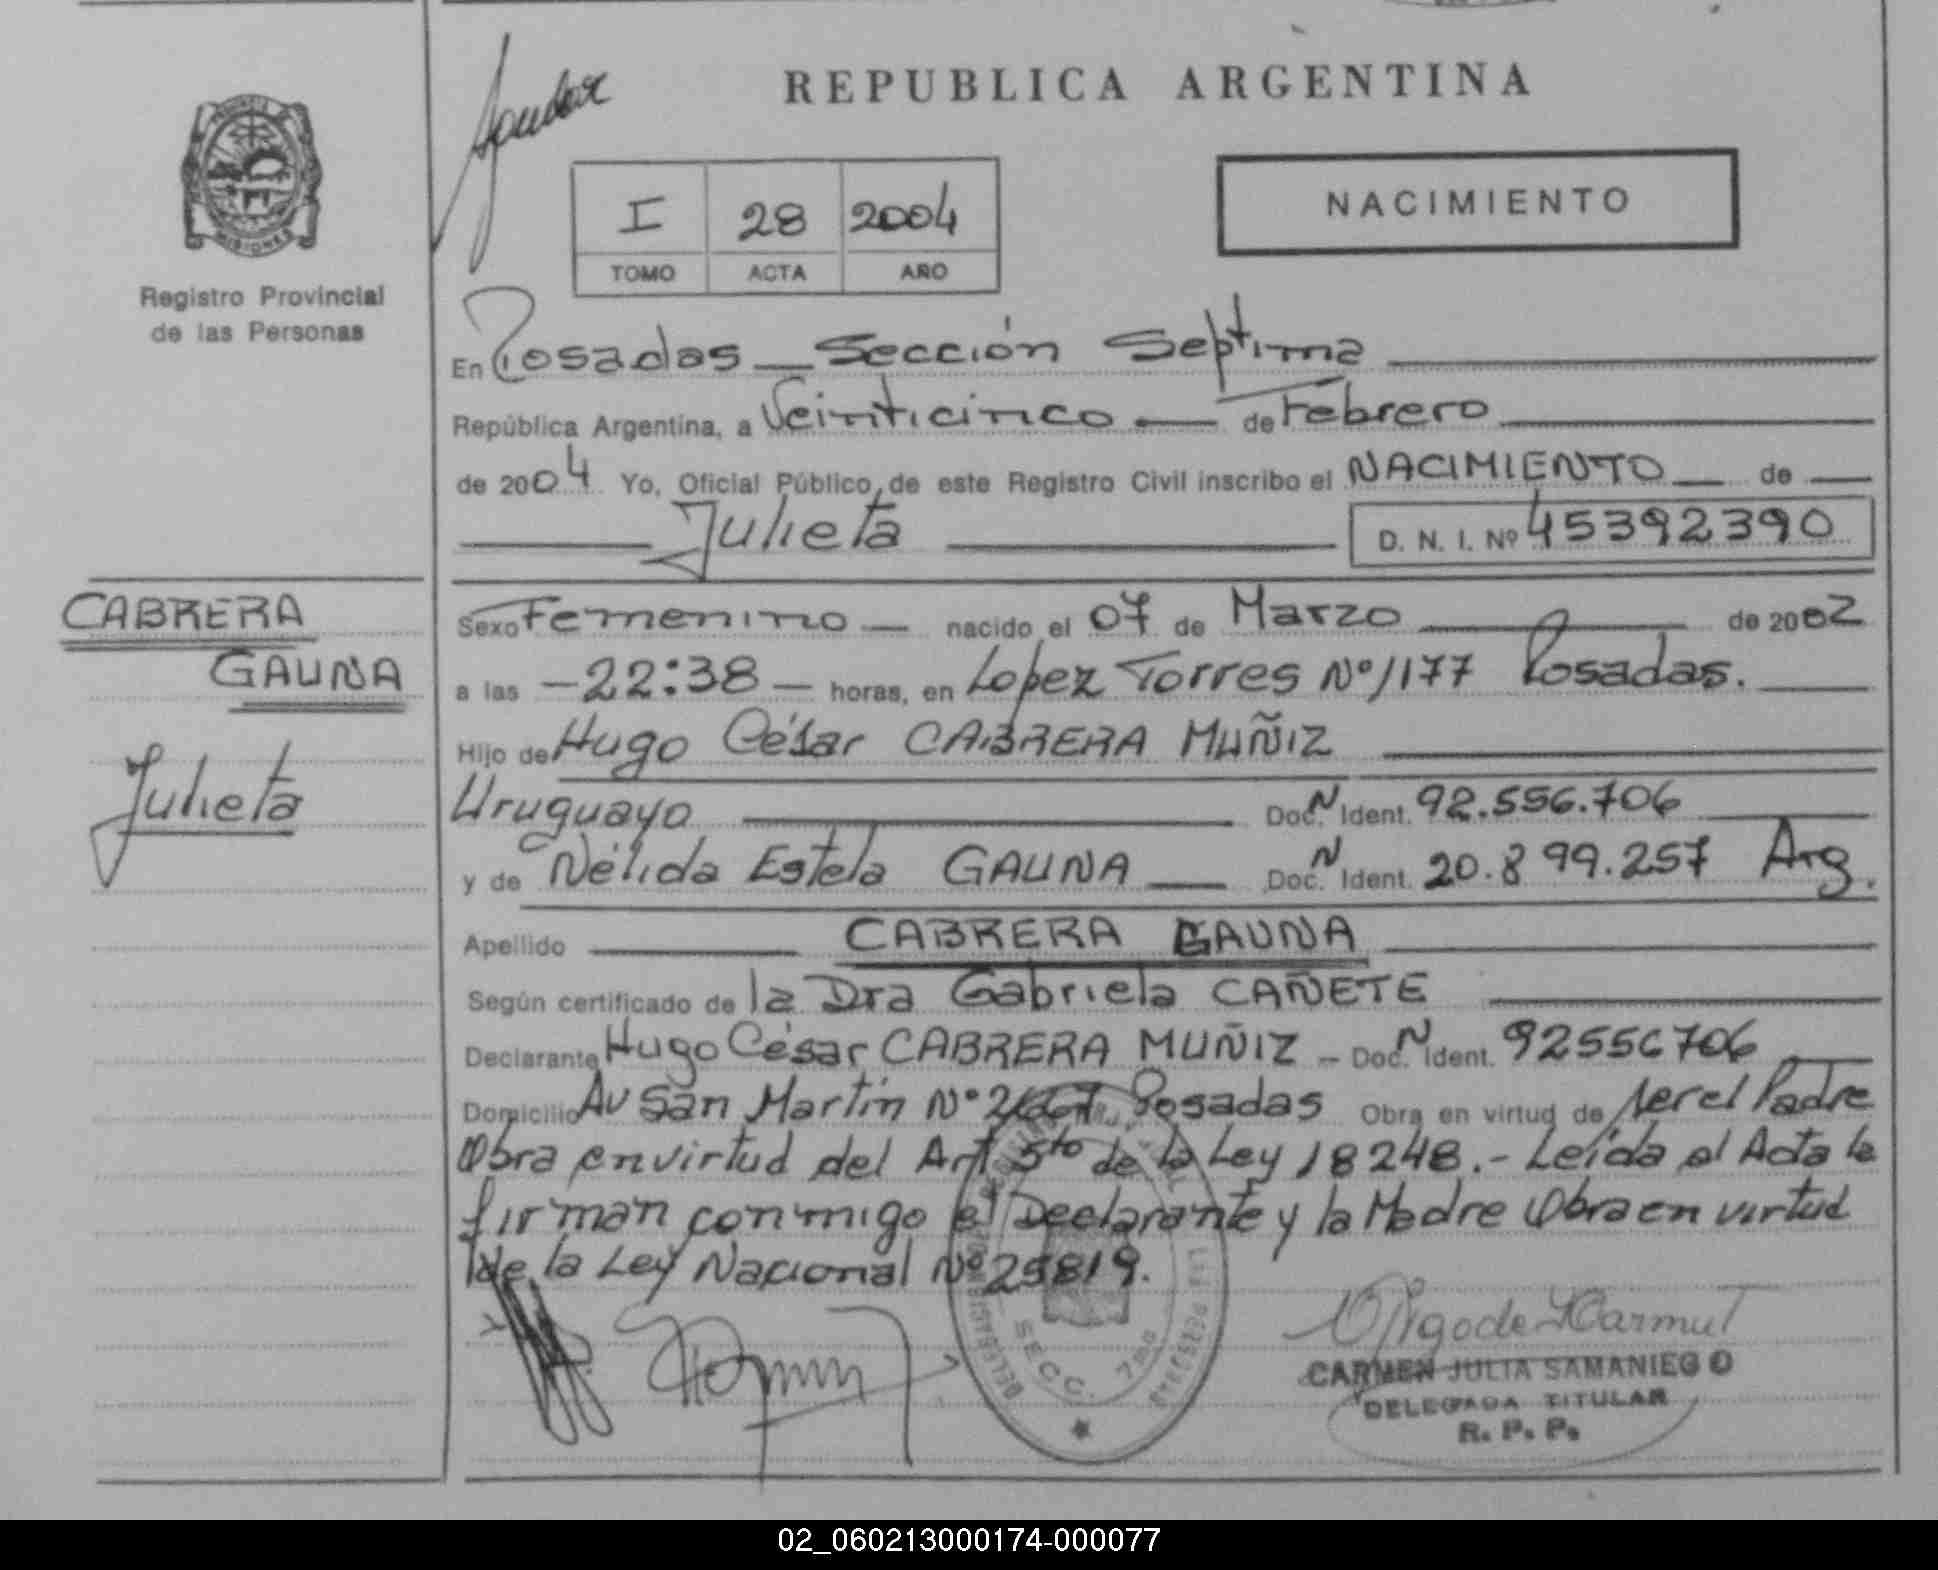 REPUBLICA ARGENTINA
MISIONES
Registro Provincial
de las Personas
I 28 2004
TOMO ACTA AÑO
NACIMIENTO
En Posadas — Sección Septima
República Argentina, a Veinticinco — de Febrero
de 2004 Yo, Oficial Público de este Registro Civil inscribo el NACIMIENTO — de
Julieta D. N. I. Nº 45392390
CABRERA
GAUNA
Julieta
Sexo Femenino — nacido el 07 de Marzo de 2002
a las -22:38- horas, en Lopez Torres Nº 1177 Posadas.
Hijo de Hugo César CABRERA MUÑIZ
Uruguayo Doc. N Ident. 92.556.706
y de Nélida Estela GAUNA — Doc. N Ident. 20.899.257 Arg.
Apellido CABRERA GAUNA
Según certificado de la Dra Gabriela CAÑETE
Declarante Hugo César CABRERA MUÑIZ - Doc. N Ident. 92556706
Domicilio Av San Martín Nº Posadas Obra en virtud de ser el Padre
Obra en virtud del Art 5to de la Ley 18248.- Leída el Acta la
firman conmigo el Declarante y la Madre Obra en virtud
de la Ley Nacional Nº 25819.
SECC. 7ma
CARMEN JULIA SAMANIEGO
DELEGADA TITULAR
R. P. P.
02_060213000174-000077